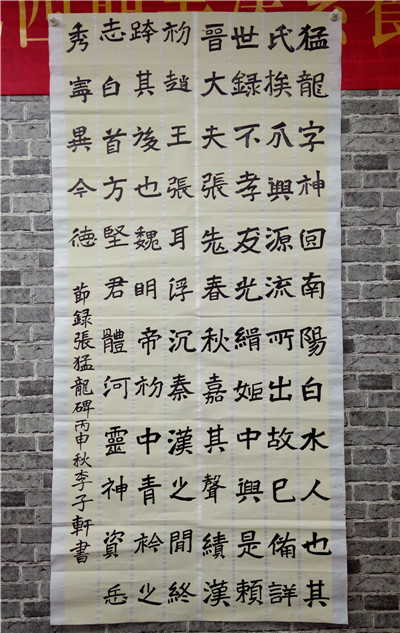 猛龍字神回南陽白水人也其
氏族爪興源流所出故已備詳
世録不孝友光緝姬中興是賴
晉大夫張老春秋嘉其聲績漢
初趙王張耳浮沉秦漢之間終
跨其後也魏明帝初中青衿之
志白首方堅君體河靈神資岳
秀寧異今德
節録張猛龍碑丙申秋李子軒書